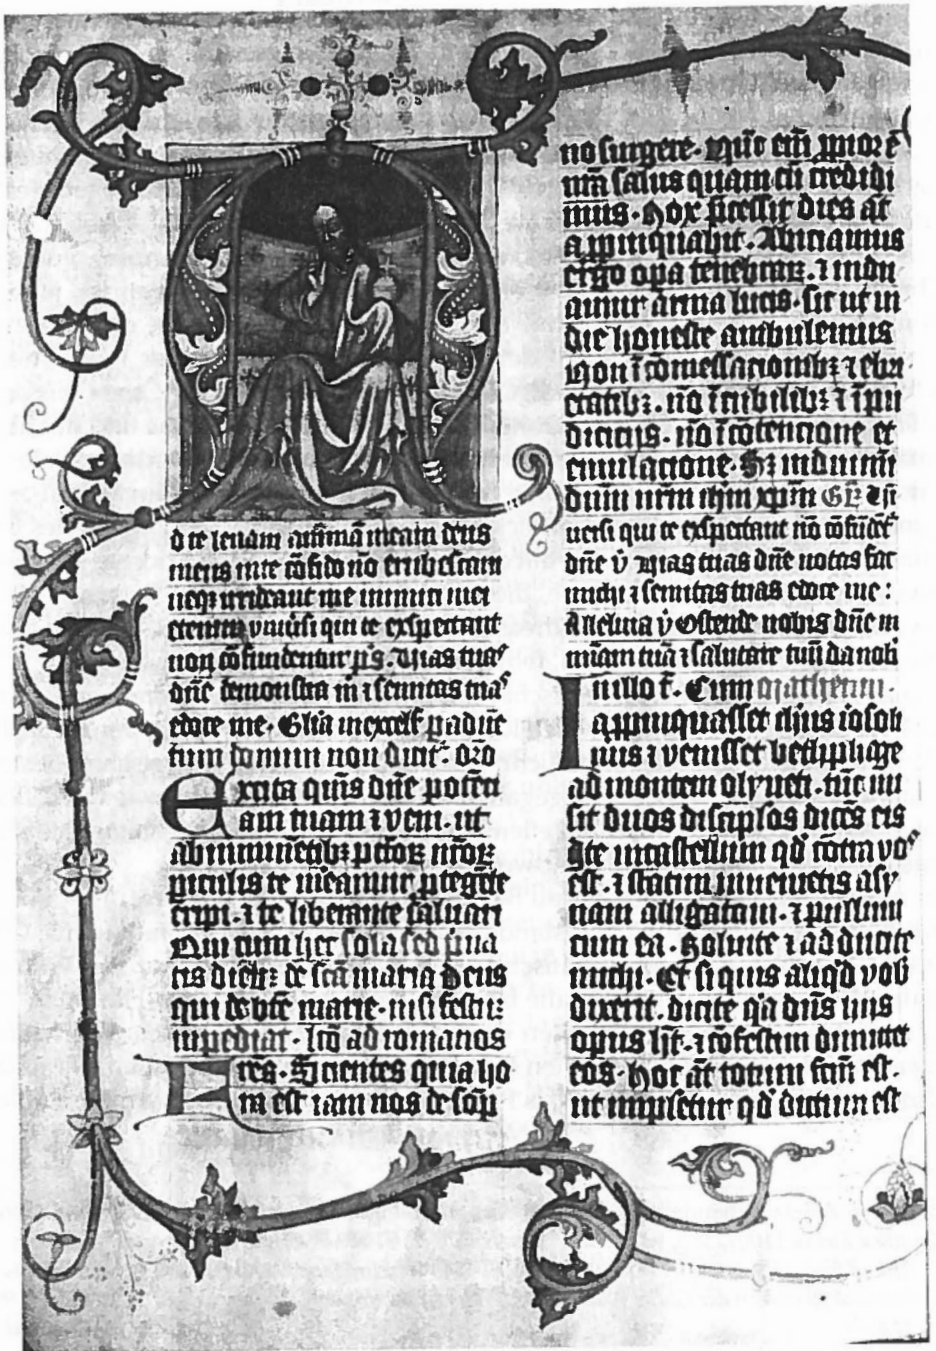 d te leuam animā meam deus
meus in te cōfido nō erubescam
neqȝ irrideant me inimici mei
etenim vniūsi qui te exspectant
non cōfundentur p̄s. Vias tuas
dn̄e demonstra m̄ ⁊ semitas tuas
edoce me. Gl̄ia inexcels̄ p aduē
tum domini non dicit͛. Or̄o
Excita qm̄s dn̄e potēci
am tuam ⁊ veni. ut
ab imminētibȝ pctōꝝ nr̄oꝝ
piculis te mēamur ptegēte
eripi. ⁊ te liberante saluari
Qui cum
cis dieb̄ȝ de sc̄a maria Deus
qui de
impediat. lcō ad romanos
Fr̄es. Scientes quia ho
ra est iam nos de sōp
no surgere. Nūc em̄ ppior ē
nr̄a salus quam cū credidi
mus. Nox p̄cessit dies at̄
appinquabit. Abiciamus
ergo opa tenebraꝝ. ⁊ indu
amur arma lucis. sic ut in
die honeste ambulemus
Non ī cōmessacionibȝ ⁊ ebri
etatibȝ. nō ī cubilibȝ ⁊ īpu
diciciis. nō ī cōtencione et
emulacione. Sȝ induimī
dn̄m nr̄m ihm̄ xpm̄
uersi qui te exspectant nō cōfūdēt͛
dn̄e v̄ Vias tuas dn̄e notas fac
michi ⁊ semitas tuas edoce me:
Alleluia v̄ Ostende nobis dn̄e m
iam tuā ⁊ salutare tuū da nob̄
In illo t̄. Cum
appinquasset
mis ⁊ venisset bethphage
ad montem olyueti. tūc mi
sit duos discip̄los dicēs eis
Ite in castellum qd̄ cōtra vos
est. ⁊ statim inuenietis asy
nam alligatam. ⁊ pullum
cum ea. Soluite ⁊ adducite
michi. Et si quis aliqd̄ vob̄
dixerit. dicite qa dn̄s hijs
opus ht̄. ⁊ cōfestim dimittet
eos. Hoc at̄ totum fcm̄ est.
ut impletur qd̄ dictum est